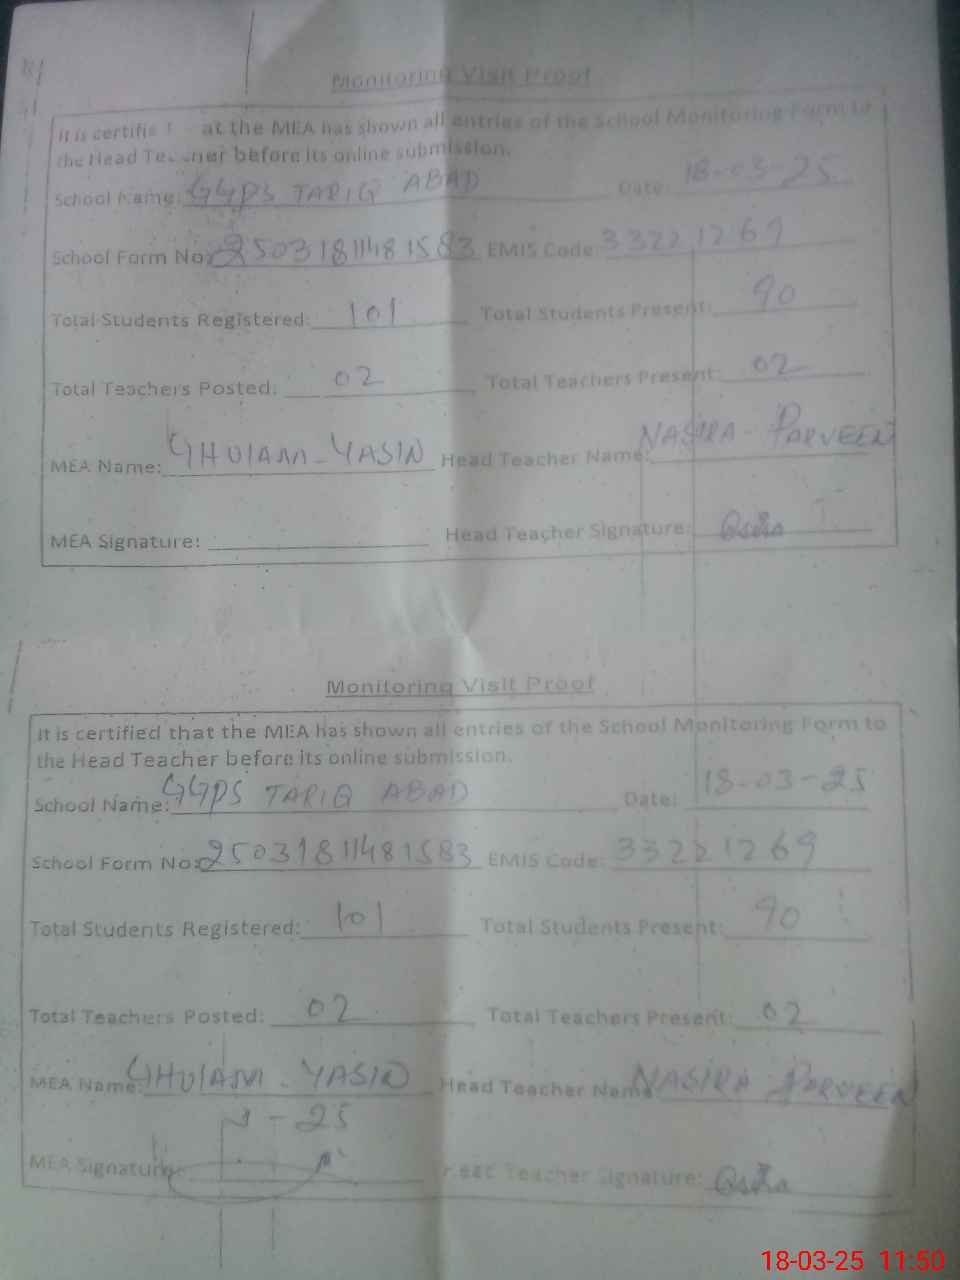 Monitoring Visit Proof
It is certifie at the MEA has shown all entries of the School Monitoring Form to
the Head Teacher before its online submission.
School Name: GGPS TARIQ ABAD Date: 18-03-25
School Form No: 250318114815 83 EMIS Code 33221269
Total Students Registered: 101 Total Students Present: 90
Total Teachers Posted: 02 Total Teachers Present: 02
MEA Name: GHULAM - YASIN Head Teacher Name: NASIRA - PARVEEN
MEA Signature: Head Teacher Signature:
Monitoring Visit Proof
It is certified that the MEA has shown all entries of the School Monitoring Form to
the Head Teacher before its online submission.
School Name: GGPS TARIQ ABAD Date: 18-03-25
School Form No: 25031811481583 EMIS Code: 33221269
Total Students Registered: 101 Total Students Present: 90
Total Teachers Posted: 02 Total Teachers Present: 02
MEA Name: GHULAM - YASIN Head Teacher Name NASIRA PARVEEN
- 25
MEA Signature: Head Teacher Signature:
18-03-25 11:50